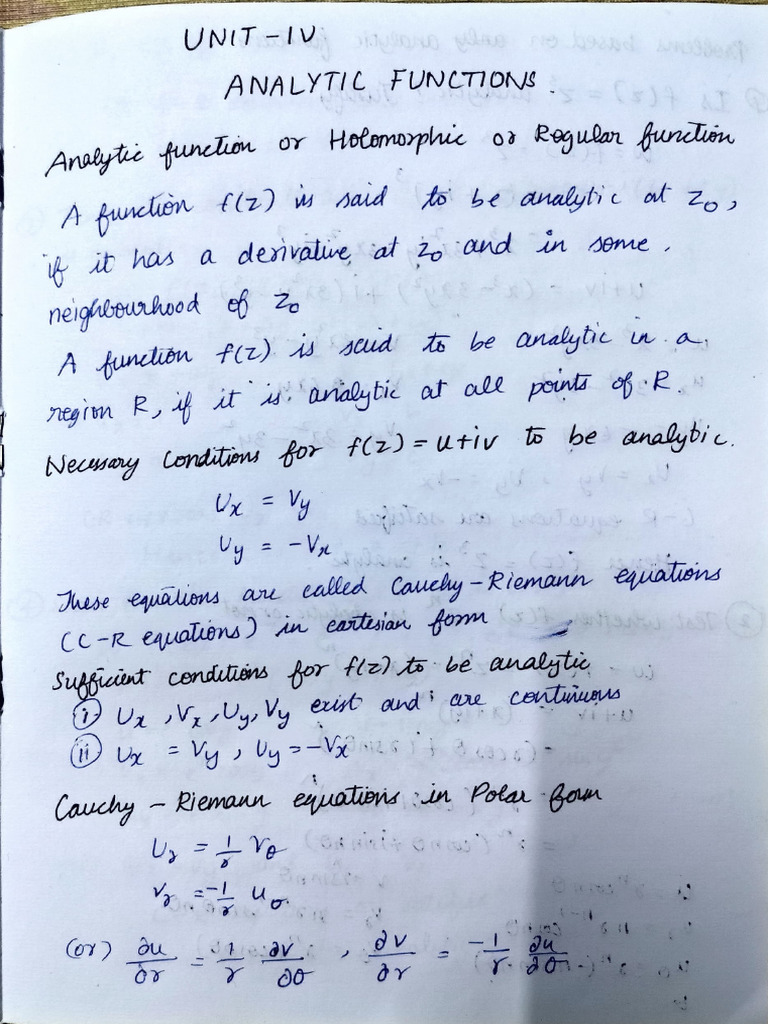 UNIT-IV
ANALYTIC FUNCTIONS.
Analytic function or Holomorphic or Regular function
A function f(z) is said to be analytic at z₀,
if it has a derivative at z₀ and in some.
neighbourhood of z₀
A function f(z) is said to be analytic in a.
region R, if it is analytic at all points of R.
Necessary conditions for f(z) = u+iv to be analytic.
Ux = Vy
Uy = -Vx
These equations are called Cauchy-Riemann equations
(C-R equations) in cartesian form
Sufficient conditions for f(z) to be analytic
(i) Ux, Vx, Uy, Vy exist and are continuous
(ii) Ux = Vy, Uy = -Vx
Cauchy - Riemann equations in Polar form
Ur = 1/r Vθ
Vr = -1/r uθ.
(or) ∂u/∂r = 1/r ∂v/∂θ , ∂v/∂r = -1/r ∂u/∂θ